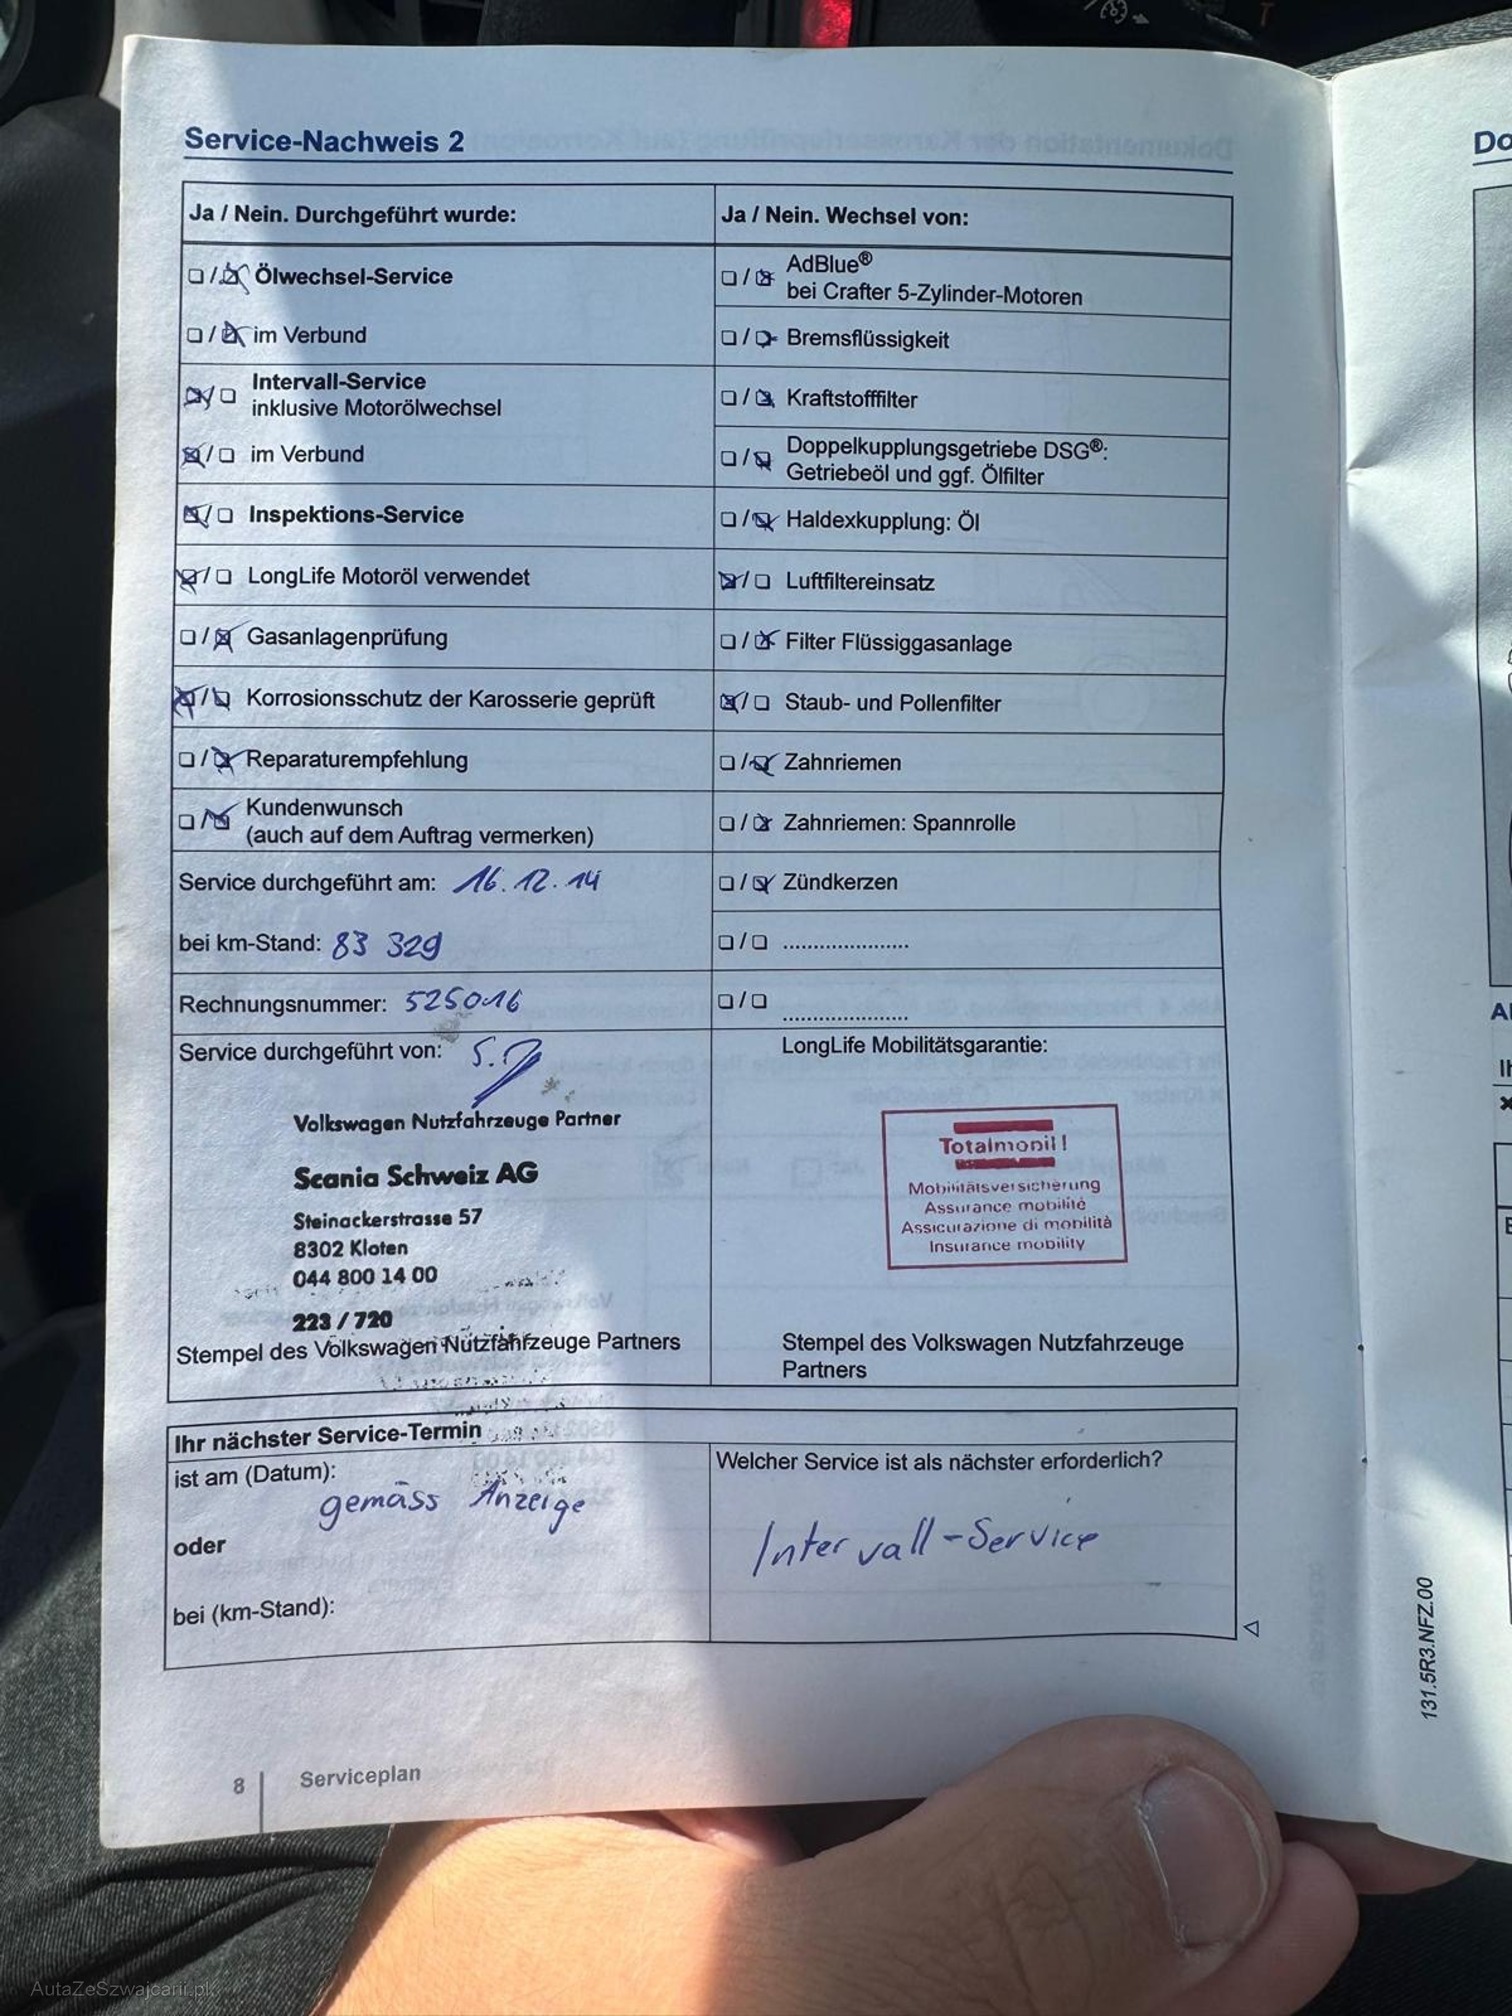 Service-Nachweis 2
Ja / Nein. Durchgeführt wurde:
☐ / ☒ Ölwechsel-Service
☐ / ☒ im Verbund
☒ / ☐ Intervall-Service
inklusive Motorölwechsel
☒ / ☐ im Verbund
☒ / ☐ Inspektions-Service
☒ / ☐ LongLife Motoröl verwendet
☐ / ☒ Gasanlagenprüfung
☒ / ☐ Korrosionsschutz der Karosserie geprüft
☐ / ☒ Reparaturempfehlung
☐ / ☒ Kundenwunsch
(auch auf dem Auftrag vermerken)
Service durchgeführt am: 16.12.14
bei km-Stand: 83 329
Rechnungsnummer: 525016
Service durchgeführt von:
Volkswagen Nutzfahrzeuge Partner
Scania Schweiz AG
Steinackerstrasse 57
8302 Kloten
044 800 14 00
223 / 720
Stempel des Volkswagen Nutzfahrzeuge Partners
Ja / Nein. Wechsel von:
☐ / ☒ AdBlue®
bei Crafter 5-Zylinder-Motoren
☐ / ☒ Bremsflüssigkeit
☐ / ☒ Kraftstofffilter
☐ / ☒ Doppelkupplungsgetriebe DSG®:
Getriebeöl und ggf. Ölfilter
☐ / ☒ Haldexkupplung: Öl
☒ / ☐ Luftfiltereinsatz
☐ / ☒ Filter Flüssiggasanlage
☒ / ☐ Staub- und Pollenfilter
☐ / ☒ Zahnriemen
☐ / ☒ Zahnriemen: Spannrolle
☐ / ☒ Zündkerzen
☐ / ☐ .....................
☐ / ☐ .....................
LongLife Mobilitätsgarantie:
Totalmobil!
Mobilitätsversicherung
Assurance mobilité
Assicurazione di mobilità
Insurance mobility
Stempel des Volkswagen Nutzfahrzeuge
Partners
Ihr nächster Service-Termin
ist am (Datum):
gemäss Anzeige
oder
bei (km-Stand):
Welcher Service ist als nächster erforderlich?
Intervall-Service
8 Serviceplan
131.5R3.NFZ.00
AutaZeSzwajcarii.pl